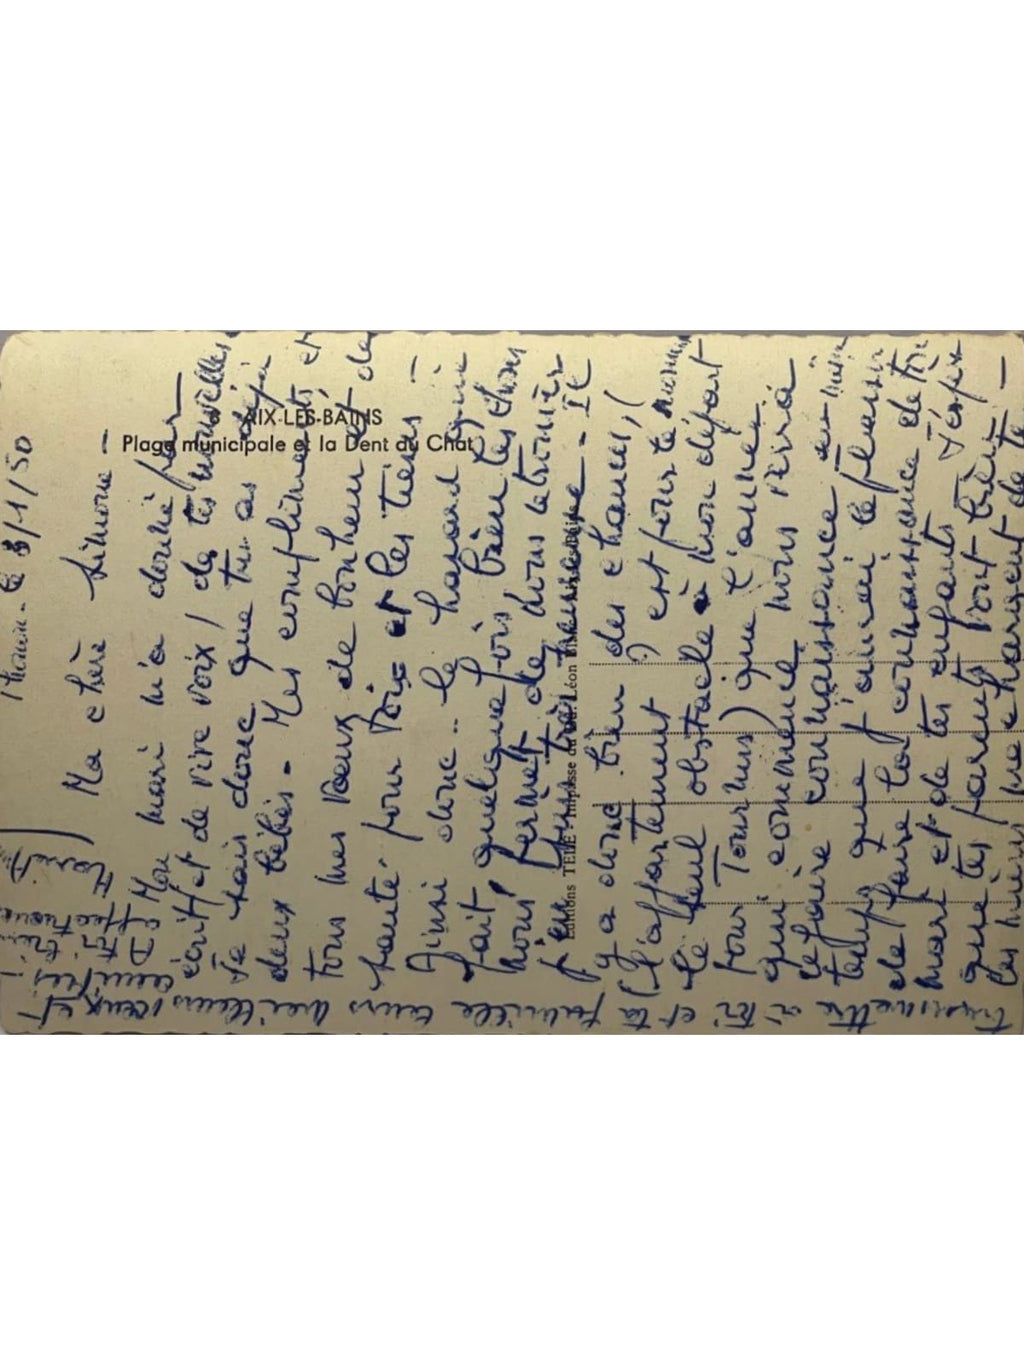 8 AIX-LES-BAINS
Plage municipale et la Dent du Chat
Editions TELE - Impasse du Léon
le 3/1/50
Ma chère Simone -
Mon mari m'a donné par
écrit (et de vive voix) de tes nouvelles
Je sais donc que tu as déjà
deux bébés - Mes compliments et
tous mes vœux de bonheur et de
santé pour toi et les tiens -
Ainsi donc le hasard qui
fait quelquefois bien les choses
nous permet de nous retrouver
j'en suis très heureuse - Il
y a donc bien des chances, (
(l'appartement ) est pour le moment
le seul obstacle à mon départ
pour Tournus) que l'année
qui commence nous verra
refaire connaissance en même
temps que j'aurai le plaisir
de faire la connaissance de ton
mari et de tes enfants J'espère
que tes parents vont bien -
les miens me chargent de te
transmettre à toi et ta famille leurs meilleurs vœux et
amitiés